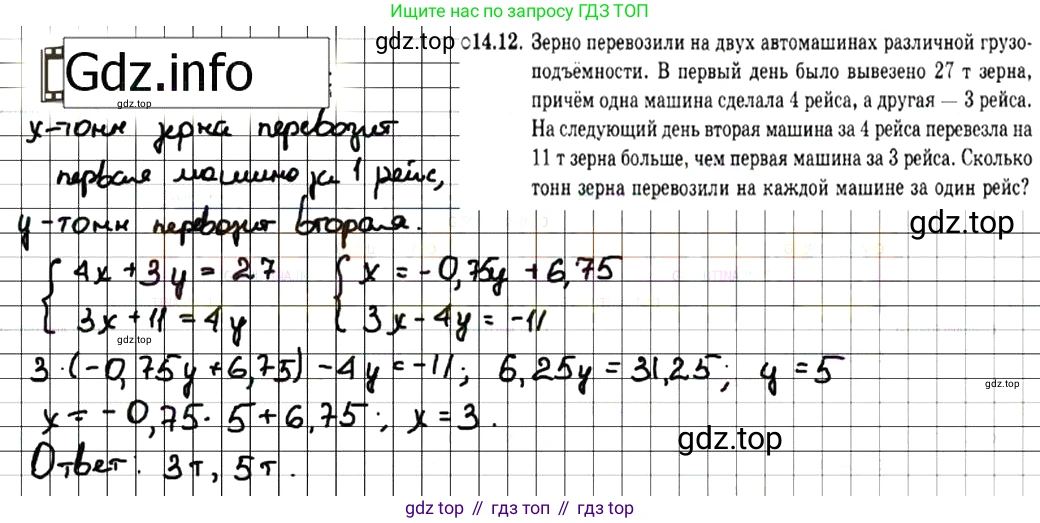 Ищите нас по запросу ГДЗ ТОП
Gdz.info
gdz.top
gdz.top
с14.12. Зерно перевозили на двух автомашинах различной грузо-
подъёмности. В первый день было вывезено 27 т зерна,
причём одна машина сделала 4 рейса, а другая — 3 рейса.
На следующий день вторая машина за 4 рейса перевезла на
11 т зерна больше, чем первая машина за 3 рейса. Сколько
тонн зерна перевозили на каждой машине за один рейс?
gdz.top
x-тонн зерна перевозит
первая машина за 1 рейс,
y-тонн перевозит вторая.
4x + 3y = 27
3x + 11 = 4y
x = -0,75y + 6,75
3x - 4y = -11
gdz.top
3·(-0,75y + 6,75) - 4y = -11; 6,25y = 31,25; y = 5
gdz.top
x = -0,75·5 + 6,75; x = 3.
gdz.top
Ответ: 3т, 5т.
gdz.top
gdz.top // гдз топ // gdz.top